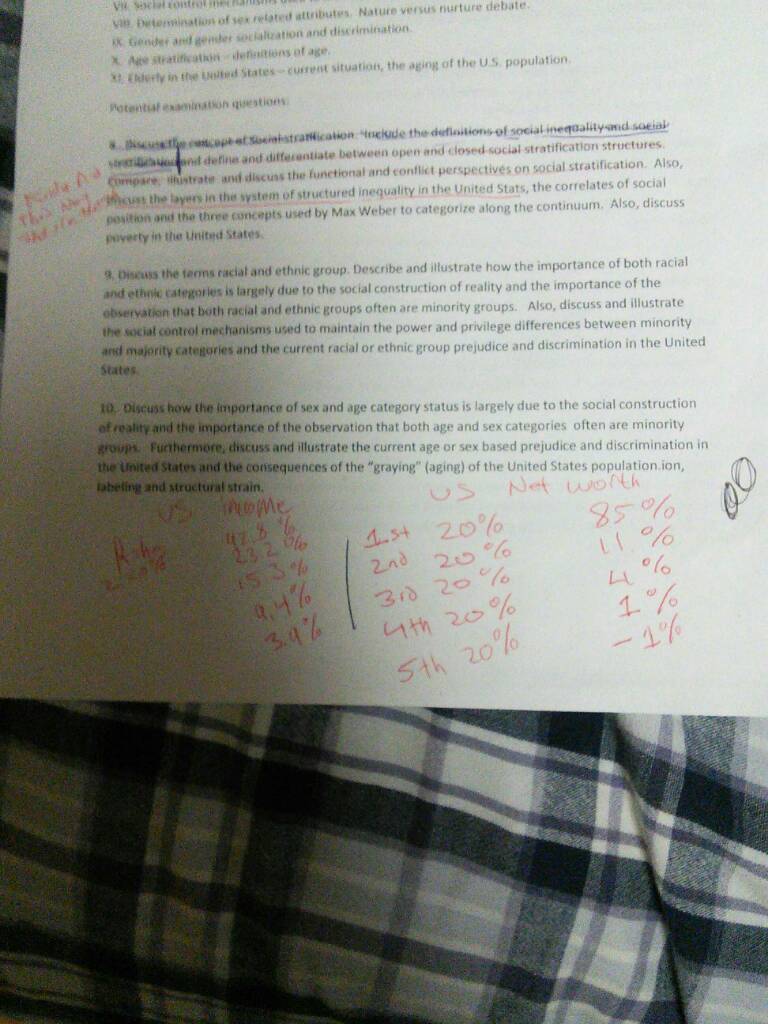 VII. Social control mechanisms used
VIII. Determination of sex related attributes. Nature versus nurture debate.
IX. Gender and gender socialization and discrimination.
X. Age stratification – definitions of age.
XI. Elderly in the United States – current situation, the aging of the U.S. population.
Potential examination questions:
8. Discuss the concept of Social stratification. Include the definitions of social inequality and social
stratification and define and differentiate between open and closed social stratification structures.
Compare, illustrate and discuss the functional and conflict perspectives on social stratification. Also,
discuss the layers in the system of structured inequality in the United Stats, the correlates of social
position and the three concepts used by Max Weber to categorize along the continuum. Also, discuss
poverty in the United States.
9. Discuss the terms racial and ethnic group. Describe and illustrate how the importance of both racial
and ethnic categories is largely due to the social construction of reality and the importance of the
observation that both racial and ethnic groups often are minority groups. Also, discuss and illustrate
the social control mechanisms used to maintain the power and privilege differences between minority
and majority categories and the current racial or ethnic group prejudice and discrimination in the United
States.
10. Discuss how the importance of sex and age category status is largely due to the social construction
of reality and the importance of the observation that both age and sex categories often are minority
groups. Furthermore, discuss and illustrate the current age or sex based prejudice and discrimination in
the United States and the consequences of the "graying" (aging) of the United States population.ion,
labeling and structural strain.
US Income US Net worth
47.8% 1st 20% 85%
23.2% 2nd 20% 11%
15.3% 3rd 20% 4%
9.4% 4th 20% 1%
3.9% 5th 20% -1%